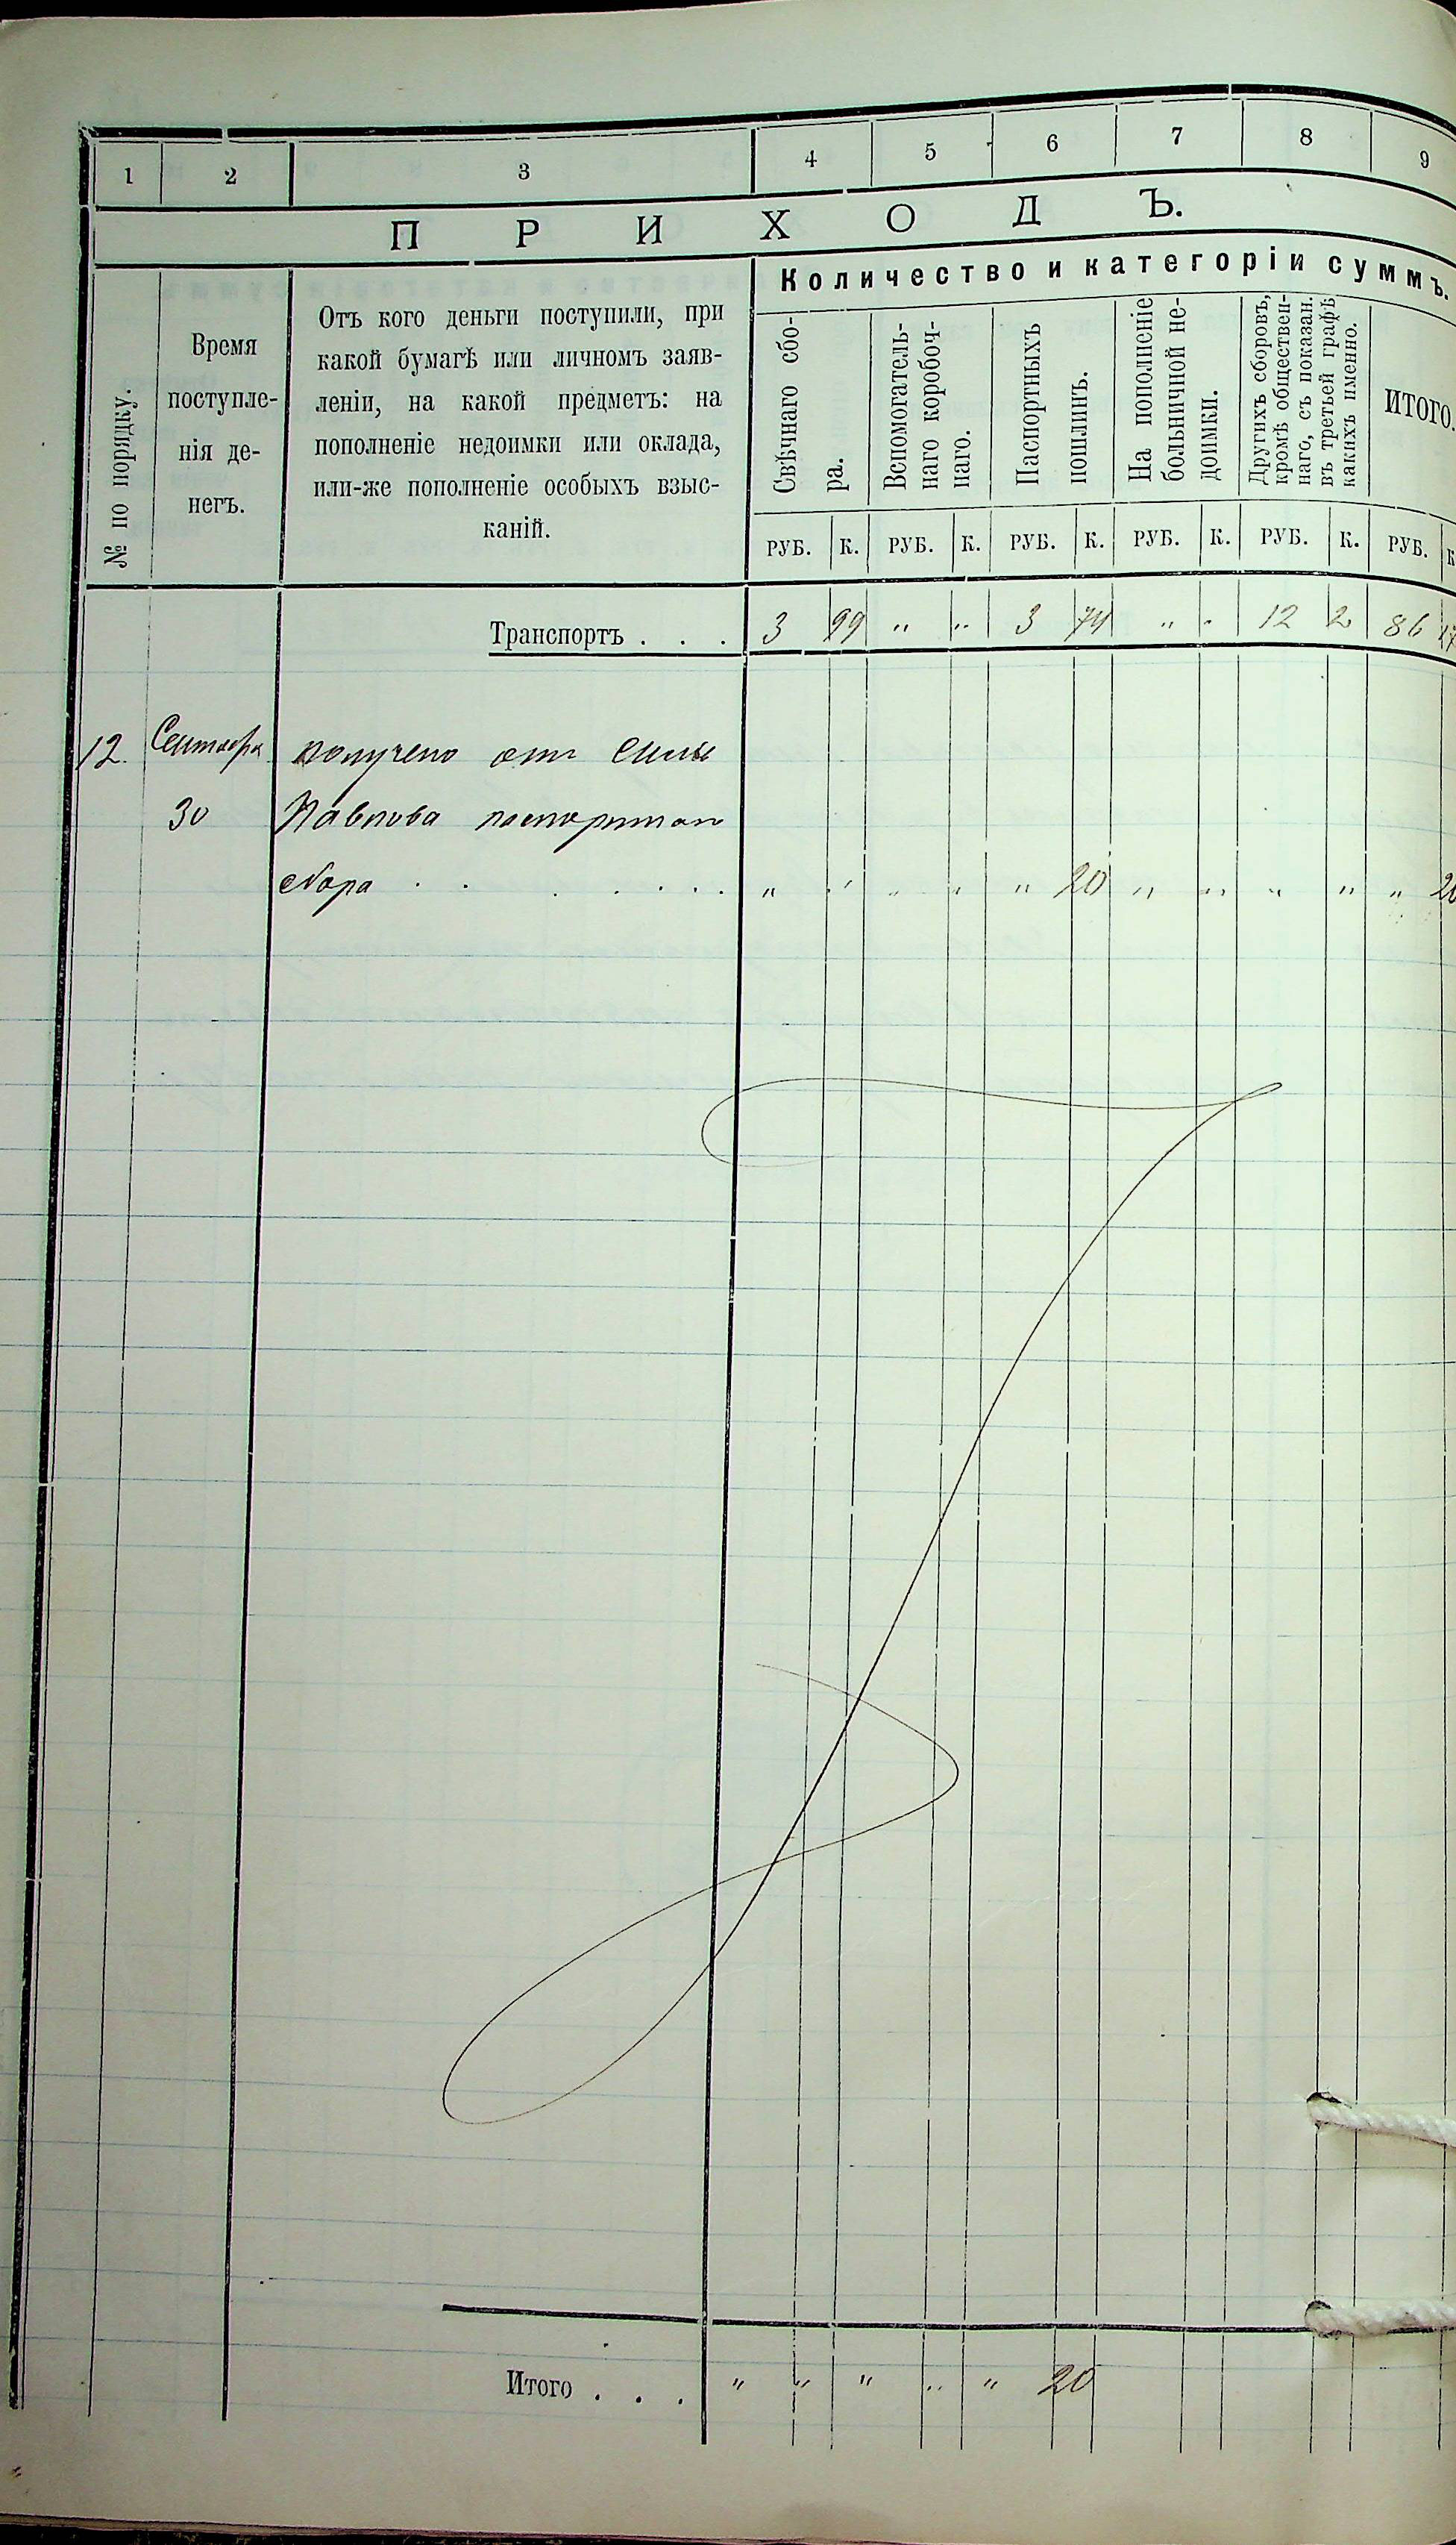 1 2 3 4 5 6 7 8 9
ПРИХОДЪ.
№ по порядку.
Время
поступле-
нія де-
негъ.
Отъ кого деньги поступили, при
какой бумагѣ или личномъ заяв-
леніи, на какой предметъ: на
пополненіе недоимки или оклада,
или-же пополненіе особыхъ взыс-
каній.
Количество и категоріи суммъ.
Свѣчнаго сбо-
ра.
Вспомогатель-
наго коробоч-
наго.
Паспортныхъ
пошлинъ.
На пополненіе
больничной не-
доимки.
Другихъ сборовъ,
кромѣ обществен-
наго, съ показан.
въ третьей графѣ
какихъ именно.
ИТОГО.
РУБ. К. РУБ. К. РУБ. К. РУБ. К. РУБ. К. РУБ. К
Транспортъ . . . 3 99 „ „ 3 74 „ „ 12 2 86
12. Сентября получено от Силы
30 Павлова
сбора . . . . . . . „ „ „ „ „ 20 „ „ „ „ „ 20
Итого . . . „ „ „ „ „ 20